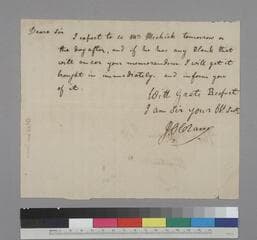 Dear Sir
I expect to se Mr Meshick tomorrow or
the day after, and if he has any Plank that
will answr your memorandum I will get it
bought in immediately. and inform you
of it.
With Grate Respect
I am Sir your Ob Svt